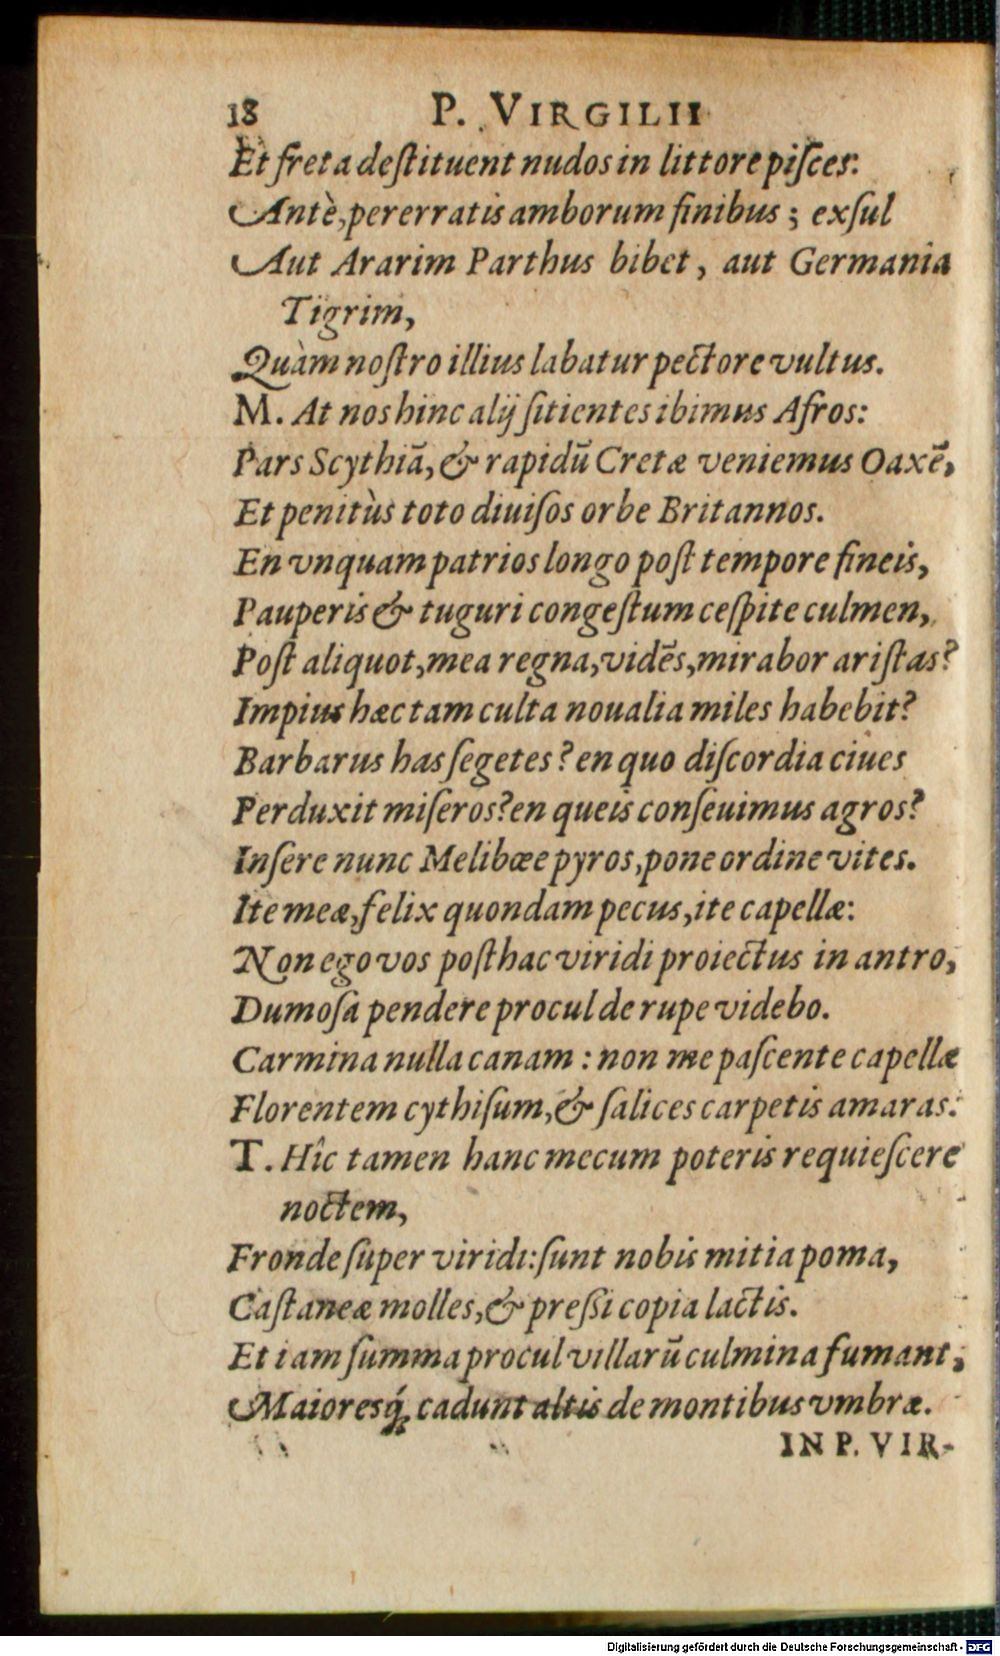 18 P. VIRGILII
Et freta deſtituent nudos in littore piſces:
Antè, pererratis amborum finibus; exſul
Aut Ararim Parthus bibet, aut Germania
Tigrim,
Quàm noſtro illius labatur pectore vultus.
M. At nos hinc alij ſitientes ibimus Afros:
Pars Scythiā, & rapidū Cretæ veniemus Oaxē,
Et penitùs toto diuiſos orbe Britannos.
En vnquam patrios longo poſt tempore fineis,
Pauperis & tuguri congeſtum ceſpite culmen,
Poſt aliquot, mea regna, vidēs, mirabor ariſtas?
Impius hæc tam culta noualia miles habebit?
Barbarus has ſegetes? en quo diſcordia ciues
Perduxit miſeros? en queis conſeuimus agros?
Inſere nunc Melibœe pyros, pone ordine vites.
Ite meæ, felix quondam pecus, ite capellæ:
Non ego vos poſthac viridi proiectus in antro,
Dumoſa pendere procul de rupe videbo.
Carmina nulla canam: non me paſcente capellæ
Florentem cythiſum, & ſalices carpetis amaras.
T. Hîc tamen hanc mecum poteris requieſcere
noctem,
Fronde ſuper viridi: ſunt nobis mitia poma,
Caſtaneæ molles, & preſſi copia lactis.
Et iam ſumma procul villarū culmina fumant,
Maioresq́; cadunt altis de montibus vmbræ.
IN P. VIR-
Digitalisierung gefördert durch die Deutsche Forschungsgemeinschaft - DFG